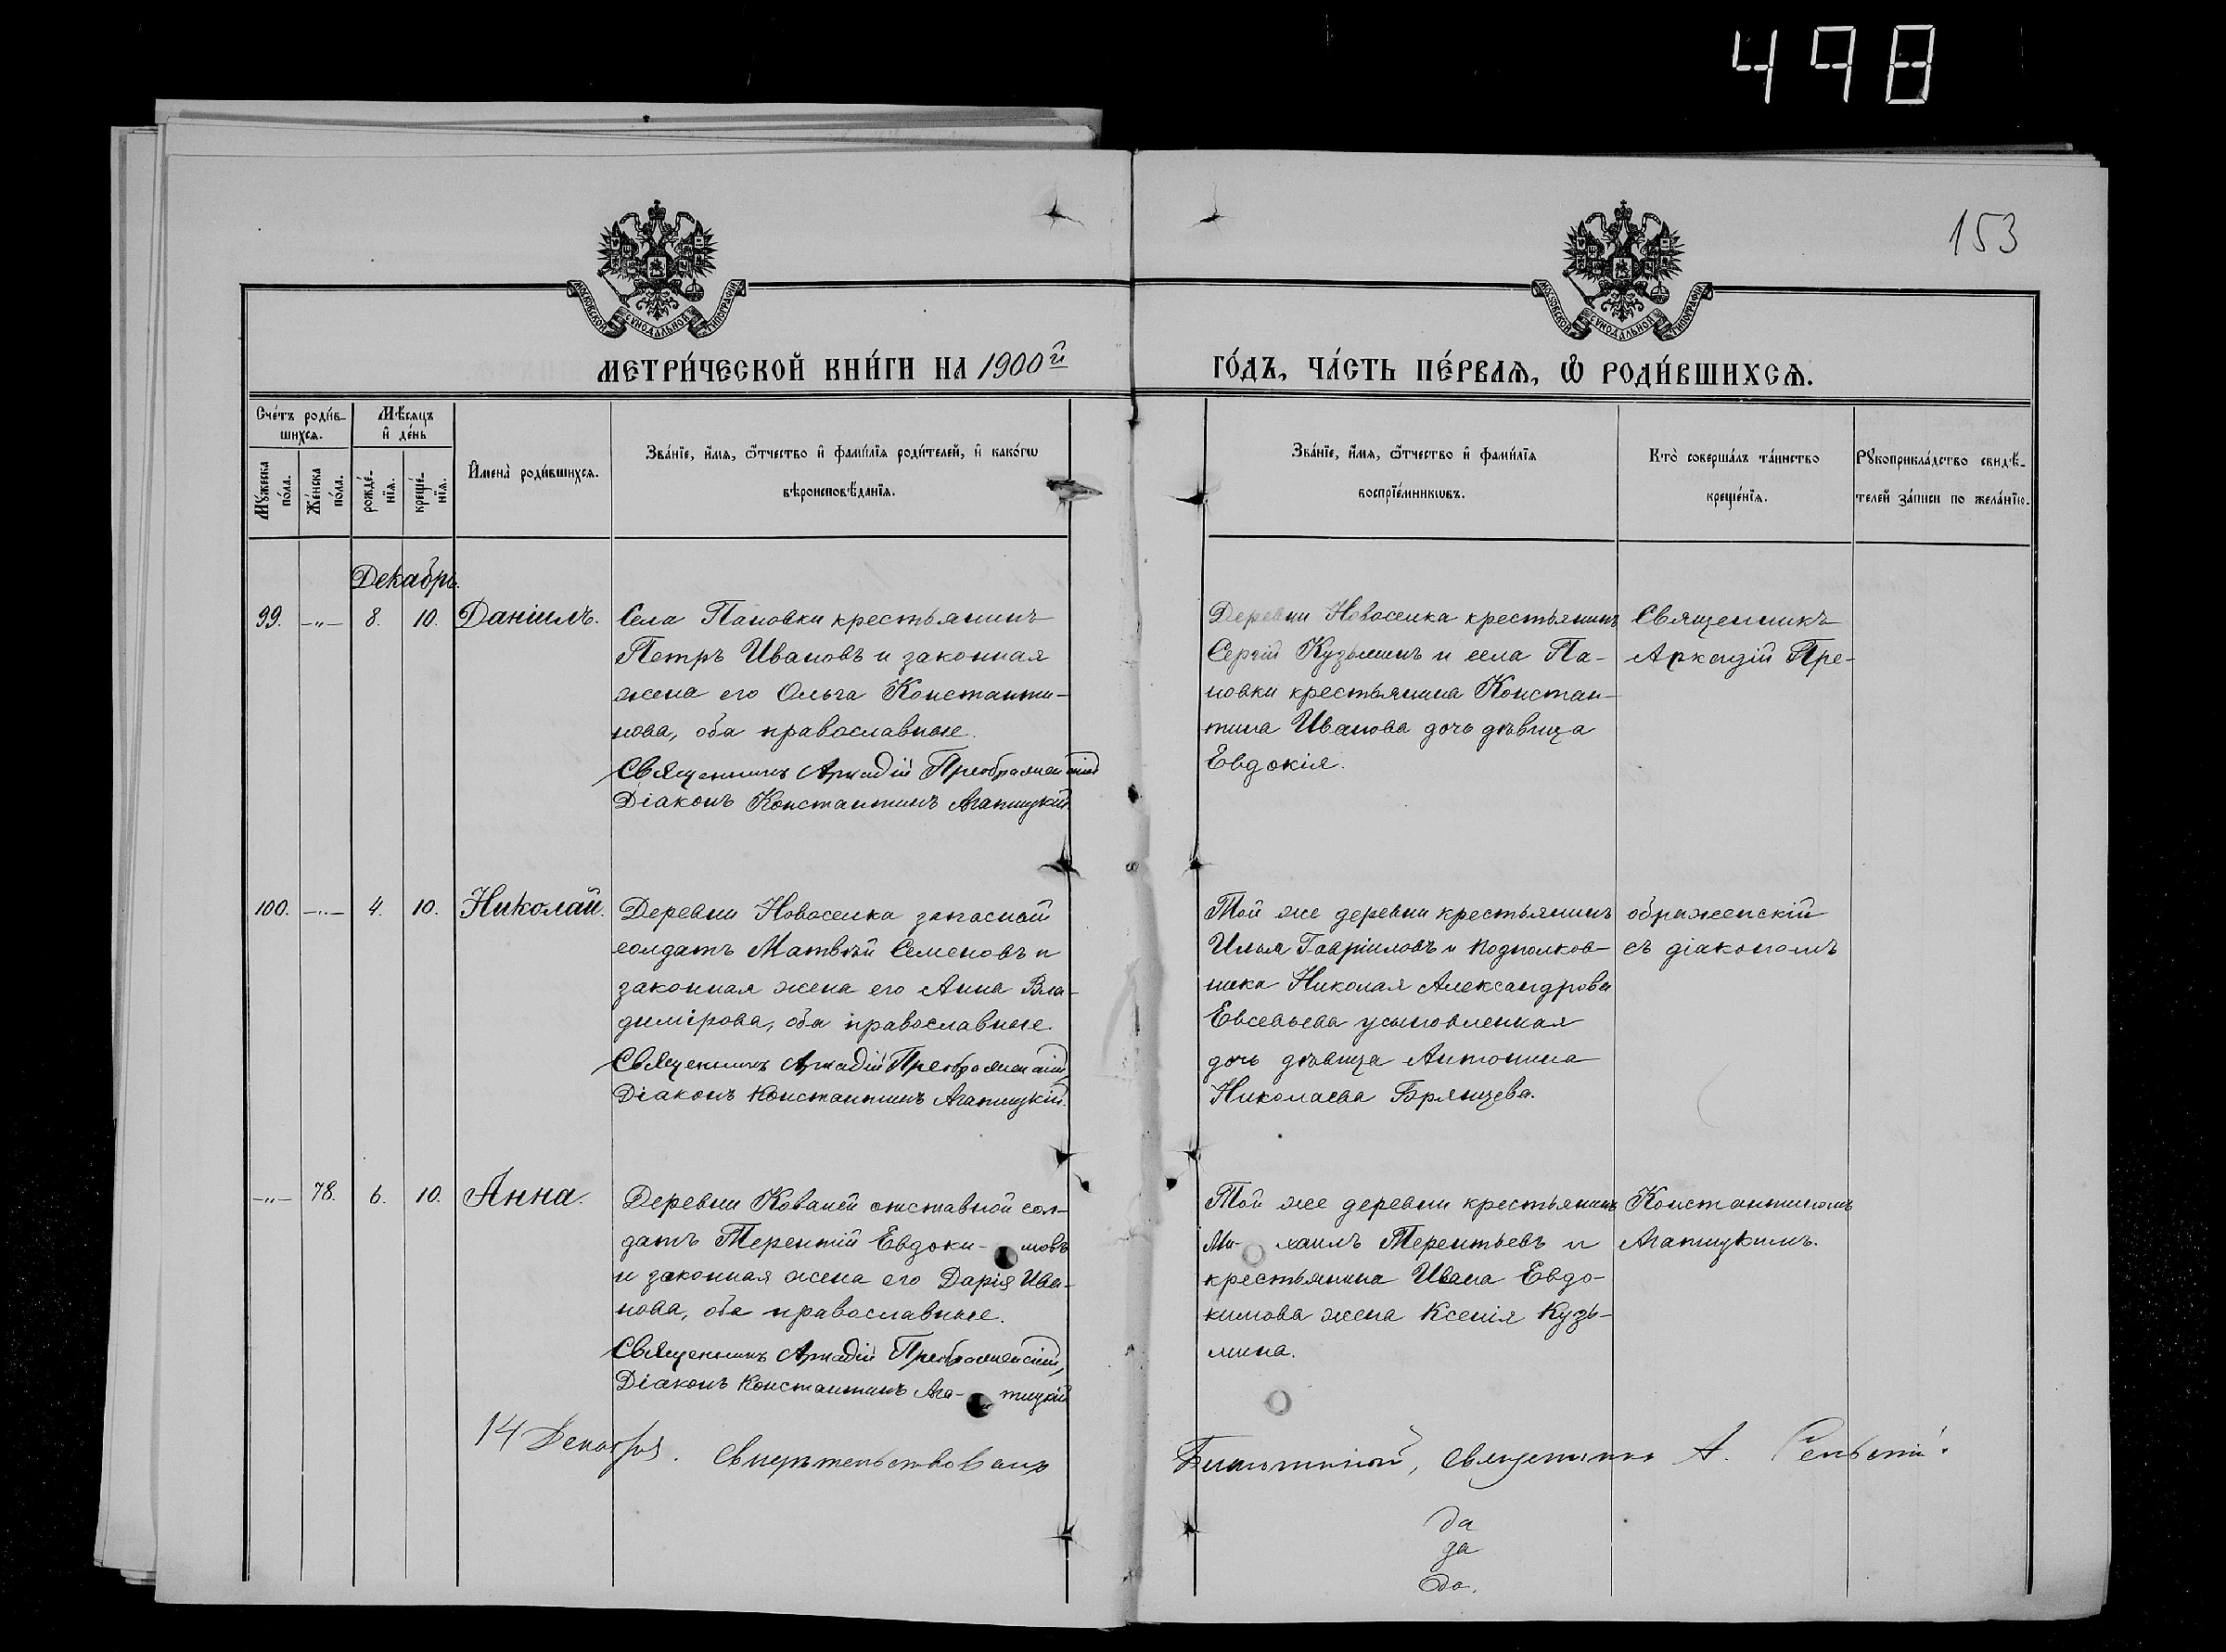 498
153
МОСКОВСКОЙ СѴНОДАЛЬНОЙ ТИПОГРАФІИ
МОСКОВСКОЙ СѴНОДАЛЬНОЙ ТИПОГРАФІИ
МЕТРИ́ЧЕСКОЙ КНИ́ГИ НА 1900й
ГО́ДЪ, ЧА́СТЬ ПЕ́РВАѦ, Ѽ РОДИ́ВШИХСѦ.
Сче́тъ роди́в-
шихсѧ.
Мѣ́сяцъ
и҆ де́нь
Мꙋ́жеска
по́ла.
Же́нска
по́ла.
рожде́-
нїѧ.
креще́-
нїѧ.
И҆мена̀ роди́вшихсѧ.
Зва́нїе, и҆́мѧ, ѻ҆́тчество и҆ фами́лїѧ роди́телей, и҆ како́гѡ
вѣроисповѣ́данїѧ.
Зва́нїе, и҆́мѧ, ѻ҆́тчество и҆ фами́лїѧ
воспрїе́мникѡвъ.
Кто̀ соверша́лъ та́инство
креще́нїѧ.
Рꙋкоприкла́дство свидѣ́-
телей за́писи по жела́нїю.
Декабрь.
99. —"— 8. 10. Даніилъ.
Села Пановки крестьянинъ
Петръ Ивановъ и законная
жена его Ольга Константи-
нова, оба православные.
Священникъ Аркадій Преображенскій
Діаконъ Константинъ Агатицкій
Деревни Новоселка крестьянинъ
Сергій Кузьминъ и села Па-
новки крестьянина Констан-
тина Иванова дочь дѣвица
Евдокія.
Священникъ
Аркадій Пре-
100. —"— 4. 10. Николай.
Деревни Новоселка запасной
солдатъ Матвѣй Семеновъ и
законная жена его Анна Вла-
димірова, оба православные.
Священникъ Аркадій Преображенскій,
Діаконъ Константинъ Агатицкій.
Той же деревни крестьянинъ
Илья Гавріиловъ и подполков-
ника Николая Александрова
Евсевьева усыновленная
дочь дѣвица Антонина
Николаева Брянцева.
ображенскій
съ діакономъ
—"— 78. 6. 10. Анна.
Деревни Кованей отставной сол-
датъ Терентій Евдоки- мовъ
и законная жена его Дарія Ива-
нова, оба православные.
Священникъ Аркадій Преображенскій,
Діаконъ Константинъ Ага- тицкій
Той же деревни крестьянинъ
Ми- хаилъ Терентьевъ и
крестьянина Ивана Евдо-
кимова жена Ксенія Кузь-
мина.
Константиномъ
Агатицкимъ.
14 Декабря. Свидѣтельствовалъ
Благочинный, Священникъ А.
да
да
да.